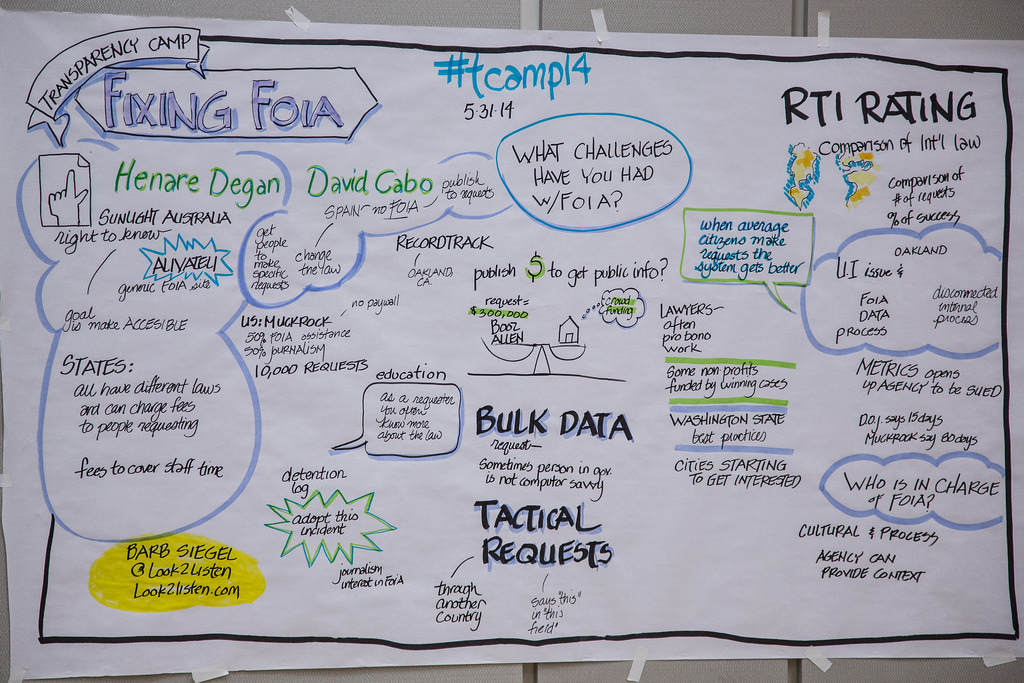 TRANSPARENCY CAMP
FIXING FOIA
#tcamp14
5·31·14
Henare Degan
SUNLIGHT AUSTRALIA
right to know
ALAVATELI
generic FOIA site
goal
is make ACCESIBLE
STATES:
all have different laws
and can charge fees
to people requesting
fees to cover staff time
BARB SIEGEL
@Look2Listen
Look2listen.com
David Cabo
SPAIN - no FOIA
publish
to requests
get
people
to
make
specific
requests
change
the law
RECORDTRACK
OAKLAND,
CA.
no paywall
US: MUCKROCK
50% FOIA assistance
50% JURNALISM
10,000 REQUESTS
education
as a requester
you often
know more
about the law
detention
log
adopt this
incident
journalism
interest in FOIA
WHAT CHALLENGES
HAVE YOU HAD
W/FOIA?
publish $ to get public info?
request=
$300,000
BOOZ
ALLEN
crowd
funding
BULK DATA
request—
Sometimes person in gov.
is not computor savvy
TACTICAL
REQUESTS
through
another
country
says "this"
in "this
field"
when average
citizens make
requests the
system gets better
LAWYERS-
often
pro bono
work
Some non profits
funded by winning cases
WASHINGTON STATE
best practices
CITIES STARTING
TO GET INTERESTED
RTI RATING
Comparison of Int'l law
Comparison of
# of requests
% of success
OAKLAND
UI issue &
FOIA
DATA
PROCESS
disconnected
internal
process
METRICS opens
up AGENCY to be SUED
D.O.J. says 15 days
MUCKROCK say 80 days
WHO IS IN CHARGE
of FOIA?
CULTURAL & PROCESS
AGENCY CAN
PROVIDE CONTEXT